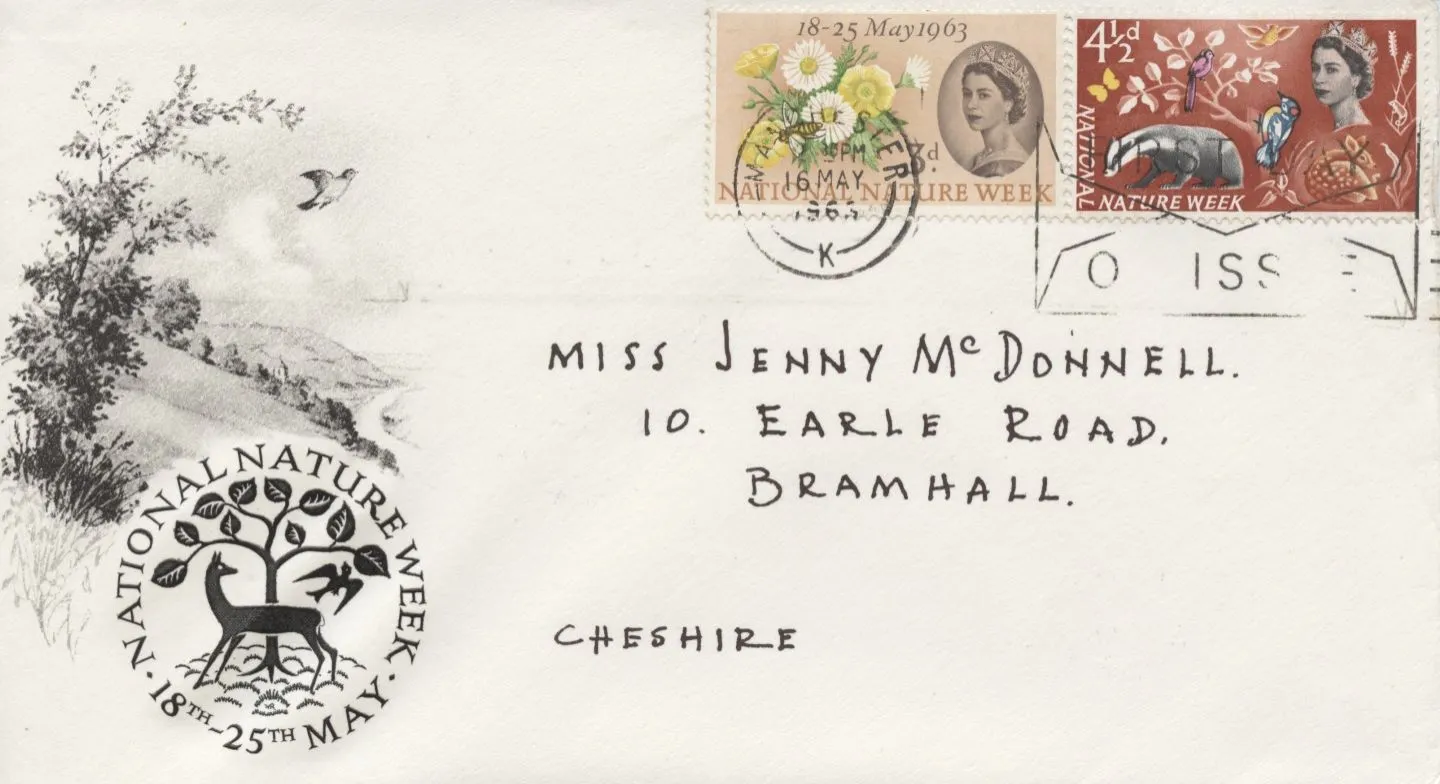 18-25 May 1963
3d.
NATIONAL NATURE WEEK
4½d
NATIONAL
NATURE WEEK
16 MAY
K
FIRST DAY
O ISS E
MISS JENNY McDONNELL.
10. EARLE ROAD.
BRAMHALL.
CHESHIRE
NATIONAL NATURE WEEK
18TH-25TH MAY